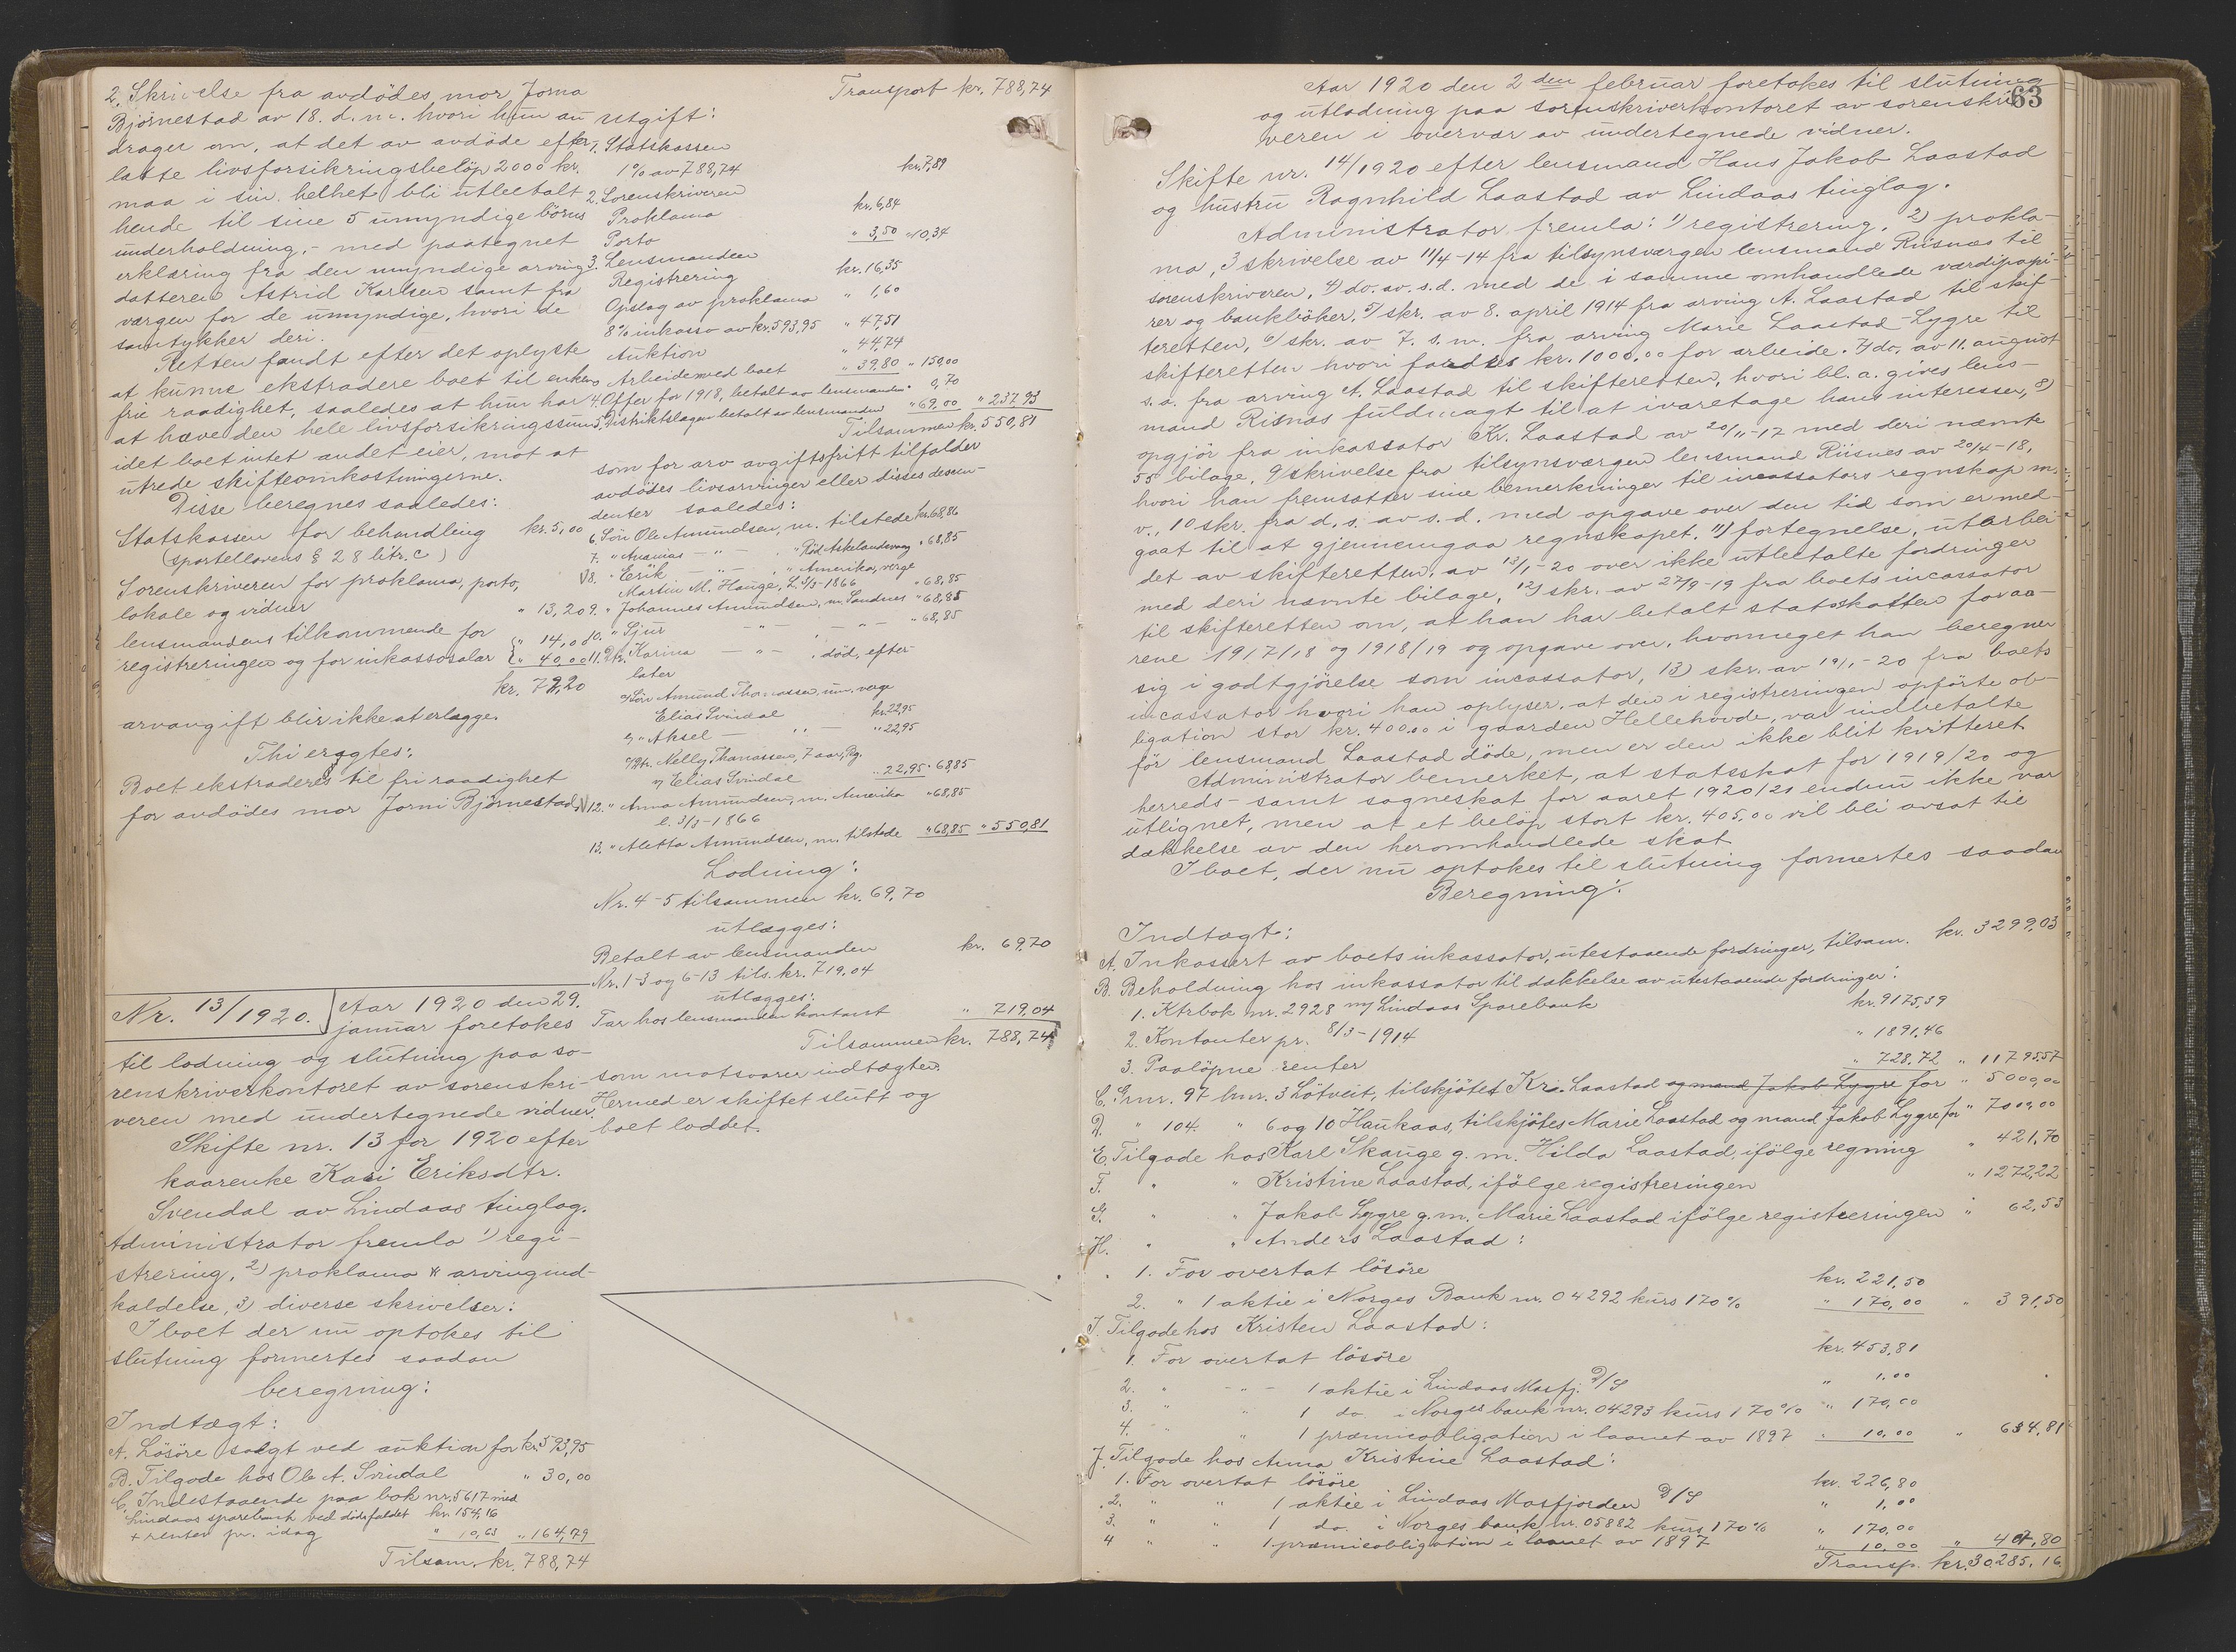 2, Skrivelse fra avdödes mor Jorna
Björnestad av 18. d.m. hvori hun an
drager om, at det av avdöde efter
latte livsforsikringsbelöp 2000 kr.
maa i sin helhet bli utbetalt
hende til sine 5 umyndige börns
underholdning, - med paategnet
erklæring fra den umyndige arving
datteren Astrid Karlsen samt fra
værgen for de umyndige, hvori de
samtykker deri.
Retten fandt efter det oplyste
at kunne ekstradere boet til enkens
frie raadighet, saaledes at hun har
at hæve den hele livsforsikringssum,
idet boet intet andet eier, mot at
utrede skifteomkostningerne.
Disse beregnes saaledes:
Statskassen for behandling kr. 5,00
(sportellovens § 28 litr. c)
Sorenskriveren for proklama, porto,
lokale og vidner " 13,20
lensmandens tilkommende for " 14,00
registreringen og for inkassosalær " 40,00
kr. 72,20
arvavgift blir ikke at erlægge.
Thi eragtes:
Boet ekstraderes til fri raadighet
for avdödes mor Jorni Björnestad.
Nr. 13/1920. Aar 1920 den 29.
januar foretokes
til lodning og slutning paa so-
renskriverkontoret av sorenskri-
veren med undertegnede vidner.
Skifte nr. 13 for 1920 efter
kaarenke Kari Eriksdtr.
Svendal av Lindaas tinglag.
Administrator fremla 1) regi-
strering, 2) proklama & arvingind-
kaldelse, 3) diverse skrivelser:
I boet der nu optokes til
slutning formertes saadan
beregning:
Indtægt:
A. Lösöre solgt ved auktion for kr. 593,95
B. Tilgode hos Ole A. Svindal " 30,00
C. Indestaaende paa bok nr. 5617 med
Lindaas sparebank ved dödsfaldet kr. 154,16
+ renter pr. idag " 10,63 " 164,79
Tilsam. kr. 788,74
Transport kr. 788,74
Utgift:
1. Statskassen
1% av 788,74 kr. 7,89
2. Sorenskriveren
Proklama kr. 6,84
Porto " 3,50 " 10,34
3. Lensmanden
Registrering kr. 16,35
Opslag av proklama " 1,60
8% inkasso av kr. 593,95 " 47,51
Auktion " 44,74
Arbeide med boet " 39,80 " 150,00
4. Offer for 1918, betalt av lensmanden " 0,70
5. Distriktslægen betalt av lensmanden " 69,00 " 237,93
Tilsammen kr. 550,81
som for arv avgiftsfritt tilfalder
avdödes livsarvinger eller disses descen-
denter saaledes:
6. Sön Ole Amundsen, m. tilstede kr. 68,86
7. " Ananias — " — , " Röd Askelandsvaag " 68,85
V8. " Erik — " — , " Amerika, verge
Martin M. Hauge, L. 3/3-1866 " 68,85
9. " Johannes Amundsen, m. Sandnes " 68,85
10. " Sjur — " — , — " — " 68,85
11. Dtr. Karina — " — , död, efter-
later
a/ Sön Amund Thomassen, um. verge
Elias Svindal kr. 22,95
b/ " Aksel — " — " 22,95
c/ Dtr. Nelly Thomassen, 7 aar, Vg.
v/ Elias Svindal " 22,95 " 68,85
V12. " Anna Amundsen, m. Amerika " 68,85
l. 3/3-1866
13. " Aletta Amundsen, m. tilstede " 68,85 " 550,81
Lodning:
Nr. 4-5 tilsammen kr. 69,70
utlægges:
Betalt av lensmanden kr. 69,70
Nr. 1-3 og 6-13 tils. kr. 719,04
utlægges:
Tar hos lensmanden kontant " 719,04
Tilsammen kr. 788,74
som motsvarer indtægten.
Hermed er skiftet slutt og
boet loddet.
63
Aar 1920 den 2den februar foretokes til slutning
og utlodning paa sorenskriverkontoret av sorenskri
veren i overvær av undertegnede vidner.
Skifte nr. 14/1920 efter lensmand Hans Jakob Laastad
og hustru Ragnhild Laastad av Lindaas tinglag.
Administrator fremla: 1) registrering, 2) prokla-
ma, 3 skrivelse av 11/4-14 fra tilsynsværgen lensmand Riisnæs til
sorenskriveren, 4) do. av. s.d. med de i samme omhandlede værdipapi-
rer og bankböker, 5) skr. av 8. april 1914 fra arving A. Laastad til skif-
teretten, 6) skr. av 7. s.m. fra arving Marie Laastad Lygre til
skifteretten hvori fordres kr. 1000,00 for arbeide. 7) do. av 11. august
s.a. fra arving A. Laastad til skifteretten, hvori bl.a. gives lens-
mand Risnæs fuldmagt til at ivaretage hans interesser, 8)
opgjör fra inkassator Kr. Laastad av 20/11-17 med deri nævnte
55 bilage, 9) skrivelse fra tilsynsværgen lensmand Riisnes av 20/4-18,
hvori han fremsætter sine bemerkninger til incassators regnskap m.
v., 10 skr. fra d.s. av s.d. med opgave over den tid som er med-
gaat til at gjennemgaa regnskapet. 11) fortegnelse, utarbei-
det av skifteretten, av 13/1-20 over ikke utbetalte fordringer
med deri nævnte bilage, 12) skr. av 27/9-19 fra boets incassator
til skifteretten om, at han har betalt statsskatten for aa-
rene 1917/18 og 1918/19 og opgave over, hvormeget han beregner
sig i godtgjörelse som incassator, 13) skr. av 19/1-20 fra boets
incassator hvori han oplyser, at den i registreringen opförte ob-
ligation stor kr. 400.00 i gaarden Hellehovde, var indbetalte
för lensmand Laastad döde, men er den ikke blit kvitteret.
Administrator bemerket, at statsskat for 1919/20 og
herreds- samt sogneskat for aaret 1920/21 endnu ikke var
utlignet, men at et belöp stort kr. 405.00 vil bli avsat til
dækkelse av den heromhandlede skat.
I boet, der nu optokes til slutning formertes saadan
Beregning:
Indtægt:
A. Inkassert av boets inkassator, utestaaende fordringer, tilsam. kr. 3299,03
B. Beholdning hos inkassator til dækkelse av utestaaende fordringer:
1. Ktrbok nr. 2928 m/ Lindaas Sparebank kr. 9175,39
2. Kontanter pr. 8/3-1914 " 1891,46
3. Paalöpne renter " 728,72 " 11795,57
C. Grnr. 97 bnr. 3 Lötveit, tilskjötet Kr. Laastad og mand Jakob Lygre for " 5000,00
D. " 104. " 6 og 10 Haukaas, tilskjötes Marie Laastad og mand Jakob Lygre for " 7000,00
E. Tilgode hos Karl Skauge g.m. Hilda Laastad, ifölge regning " 421,70
F. " " Kristine Laastad, ifölge registreringen " 1272,22
G. " " Jakob Lygre g.m. Marie Laastad ifölge registreringen " 62,53
H. " " Anders Laastad:
1. For overtat lösöre kr. 221,50
2. " 1 aktie i Norges Bank nr. 04292 kurs 170% " 170,00 " 391,50
I. Tilgode hos Kristen Laastad:
1. For overtat lösöre kr. 453,81
2. " - " - 1 aktie i Lindaas Masfj. D/S " 1,00
3. " " 1 do. i Norges bank nr. 04293 kurs 170% " 170,00
4. " " 1 præmieobligation i laanet av 1897 " 10,00 " 634,81
J. Tilgode hos Anna Kristine Laastad:
1. For overtat lösöre kr. 226,80
2. " " 1 aktie i Lindaas Masfjorden D/S " 1,00
3. " " 1 do. i Norges bank nr. 05882 kurs 170% " 170,00
4 " " 1 præmieobligation i laanet av 1897 " 10.00 " 407,80
Transp. kr. 30285,16